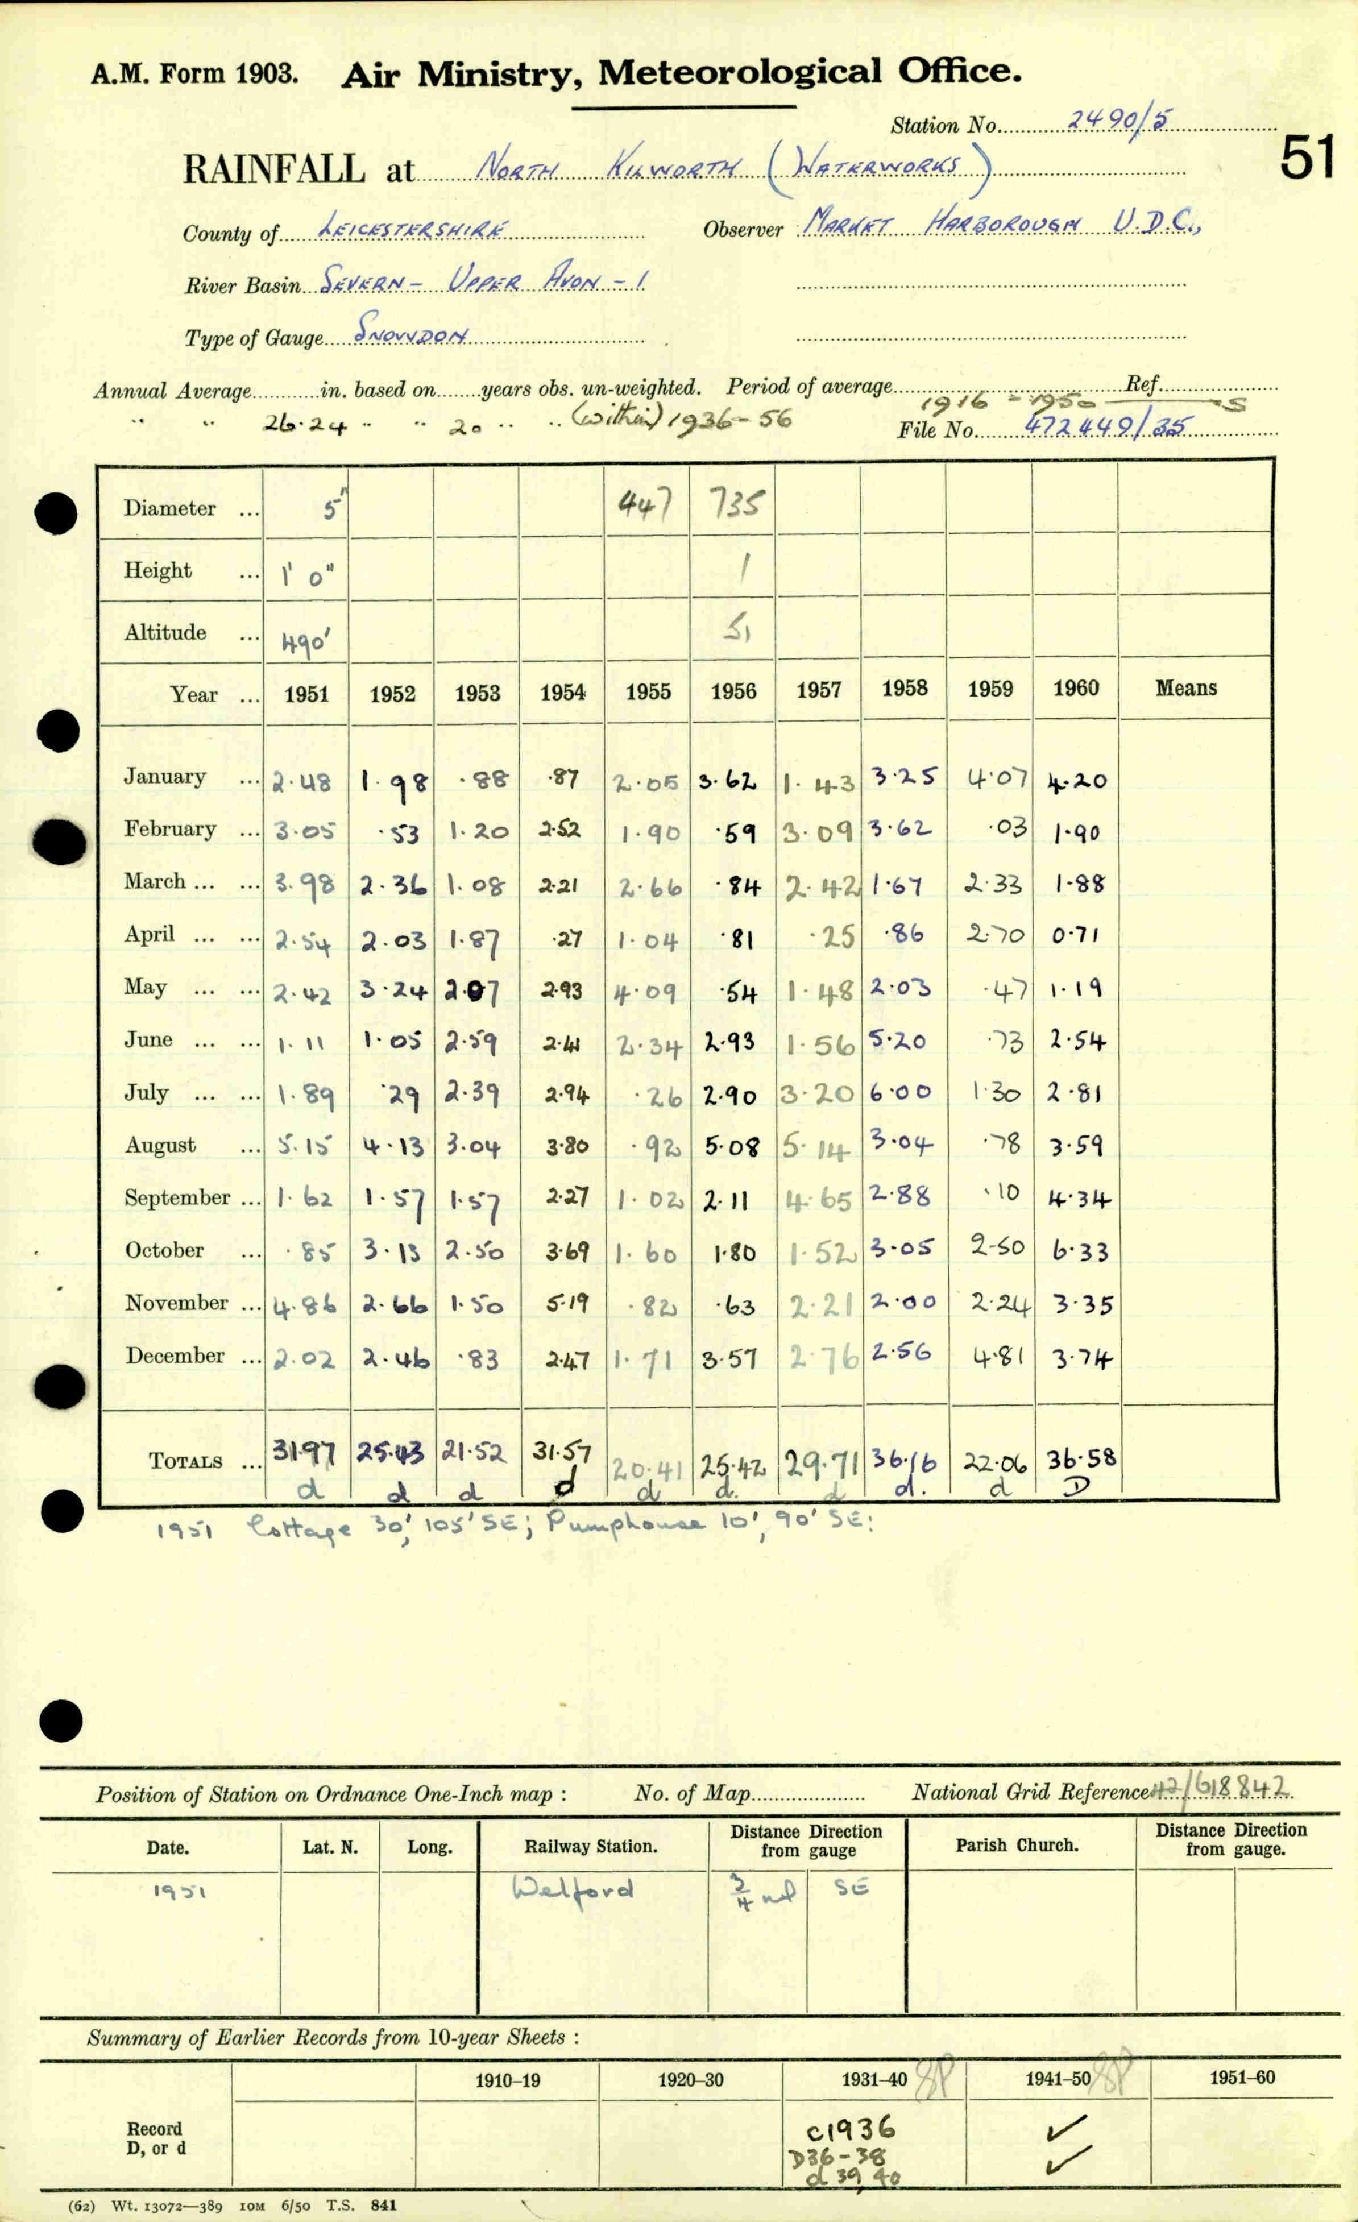 A.M. Form 1903. Air Ministry, Meteorological Office.
Station No. 2490/5
51
RAINFALL at NORTH KILWORTH (WATERWORKS)
County of LEICESTERSHIRE Observer MARKET HARBOROUGH U.D.C.,
River Basin SEVERN - UPPER AVON - 1
Type of Gauge SNOWDON
Annual Average............in. based on........years obs. un-weighted. Period of average 1916 - 1950 Ref. S
" " 26.24 " " 20 " " (within) 1936-56 File No. 472449/35
Diameter ... 5" 447 735
Height ... 1' 0" 1
Altitude ... 490' 51
Year ... 1951 1952 1953 1954 1955 1956 1957 1958 1959 1960 Means
January ... 2.48 1.98 .88 .87 2.05 3.62 1.43 3.25 4.07 4.20
February ... 3.05 .53 1.20 2.52 1.90 .59 3.09 3.62 .03 1.90
March ... ... 3.98 2.36 1.08 2.21 2.66 .84 2.42 1.67 2.33 1.88
April ... ... 2.54 2.03 1.87 .27 1.04 .81 .25 .86 2.70 0.71
May ... ... 2.42 3.24 2.07 2.93 4.09 .54 1.48 2.03 .47 1.19
June ... ... 1.11 1.05 2.59 2.41 2.34 2.93 1.56 5.20 .73 2.54
July ... ... 1.89 .29 2.39 2.94 .26 2.90 3.20 6.00 1.30 2.81
August ... 5.15 4.13 3.04 3.80 .92 5.08 5.14 3.04 .78 3.59
September ... 1.62 1.57 1.57 2.27 1.02 2.11 4.65 2.88 .10 4.34
October ... .85 3.13 2.50 3.69 1.60 1.80 1.52 3.05 2.50 6.33
November ... 4.86 2.66 1.50 5.19 .82 .63 2.21 2.00 2.24 3.35
December ... 2.02 2.46 .83 2.47 1.71 3.57 2.76 2.56 4.81 3.74
TOTALS ... 31.97 25.43 21.52 31.57 20.41 25.42 29.71 36.16 22.06 36.58
d d d d d d. d d. d D
1951 Cottage 30', 105' SE; Pumphouse 10', 90' SE:
Position of Station on Ordnance One-Inch map : No. of Map.................... National Grid Reference 42/618842
Date. Lat. N. Long. Railway Station. Distance from gauge Direction Parish Church. Distance from gauge. Direction
1951 Welford 3/4 ml SE
Summary of Earlier Records from 10-year Sheets :
1910-19 1920-30 1931-40 SP 1941-50 SP 1951-60
Record D, or d c1936 ✓
D36-38 ✓
d 39, 40
(62) Wt. 13072—389 10M 6/50 T.S. 841